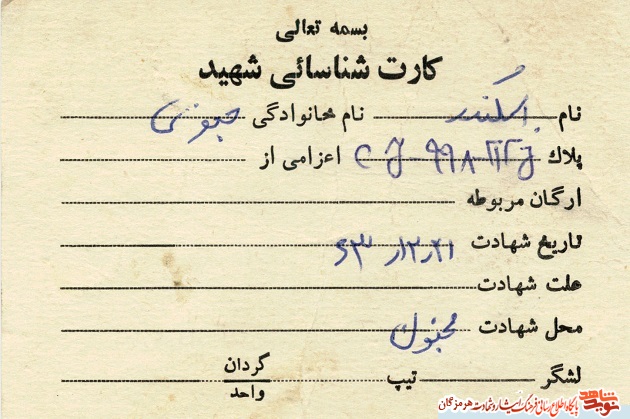 بسمه تعالی
کارت شناسائی شهید
نام اسکندر نام خانوادگی
پلاك اعزامی از
ارگان مربوطه
تاریخ شهادت ۶۳/۱۲/۲۱
علت شهادت
محل شهادت مجنون
لشگر تیپ گردان
واحد
نوید شاهد
پایگاه اطلاع رسانی فرهنگ ایثار و شهادت هرمزگان